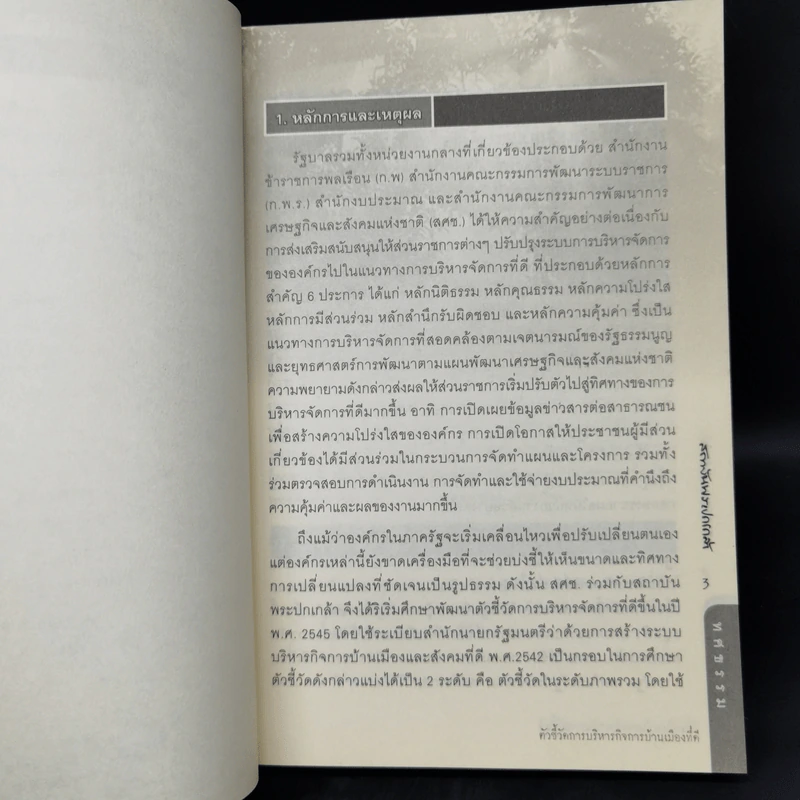 1. หลักการและเหตุผล
รัฐบาลรวมทั้งหน่วยงานกลางที่เกี่ยวข้องประกอบด้วย สำนักงาน
ข้าราชการพลเรือน (ก.พ) สำนักงานคณะกรรมการพัฒนาระบบราชการ
(ก.พ.ร.) สำนักงบประมาณ และสำนักงานคณะกรรมการพัฒนาการ
เศรษฐกิจและสังคมแห่งชาติ (สศช.) ได้ให้ความสำคัญอย่างต่อเนื่องกับ
การส่งเสริมสนับสนุนให้ส่วนราชการต่างๆ ปรับปรุงระบบการบริหารจัดการ
ขององค์กรไปในแนวทางการบริหารจัดการที่ดี ที่ประกอบด้วยหลักการ
สำคัญ 6 ประการ ได้แก่ หลักนิติธรรม หลักคุณธรรม หลักความโปร่งใส
หลักการมีส่วนร่วม หลักสำนึกรับผิดชอบ และหลักความคุ้มค่า ซึ่งเป็น
แนวทางการบริหารจัดการที่สอดคล้องตามเจตนารมณ์ของรัฐธรรมนูญ
และยุทธศาสตร์การพัฒนาตามแผนพัฒนาเศรษฐกิจและสังคมแห่งชาติ
ความพยายามดังกล่าวส่งผลให้ส่วนราชการเริ่มปรับตัวไปสู่ทิศทางของการ
บริหารจัดการที่ดีมากขึ้น อาทิ การเปิดเผยข้อมูลข่าวสารต่อสาธารณชน
เพื่อสร้างความโปร่งใสขององค์กร การเปิดโอกาสให้ประชาชนผู้มีส่วน
เกี่ยวข้องได้มีส่วนร่วมในกระบวนการจัดทำแผนและโครงการ รวมทั้ง
ร่วมตรวจสอบการดำเนินงาน การจัดทำและใช้จ่ายงบประมาณที่คำนึงถึง
ความคุ้มค่าและผลของงานมากขึ้น
ถึงแม้ว่าองค์กรในภาครัฐจะเริ่มเคลื่อนไหวเพื่อปรับเปลี่ยนตนเอง
แต่องค์กรเหล่านี้ยังขาดเครื่องมือที่จะช่วยบ่งชี้ให้เห็นขนาดและทิศทาง
การเปลี่ยนแปลงที่ชัดเจนเป็นรูปธรรม ดังนั้น สศช. ร่วมกับสถาบัน
พระปกเกล้า จึงได้ริเริ่มศึกษาพัฒนาตัวชี้วัดการบริหารจัดการที่ดีขึ้นในปี
พ.ศ. 2545 โดยใช้ระเบียบสำนักนายกรัฐมนตรีว่าด้วยการสร้างระบบ
บริหารกิจการบ้านเมืองและสังคมที่ดี พ.ศ.2542 เป็นกรอบในการศึกษา
ตัวชี้วัดดังกล่าวแบ่งได้เป็น 2 ระดับ คือ ตัวชี้วัดในระดับภาพรวม โดยใช้
สถาบันพระปกเกล้า
3
ทศธรรม
ตัวชี้วัดการบริหารกิจการบ้านเมืองที่ดี